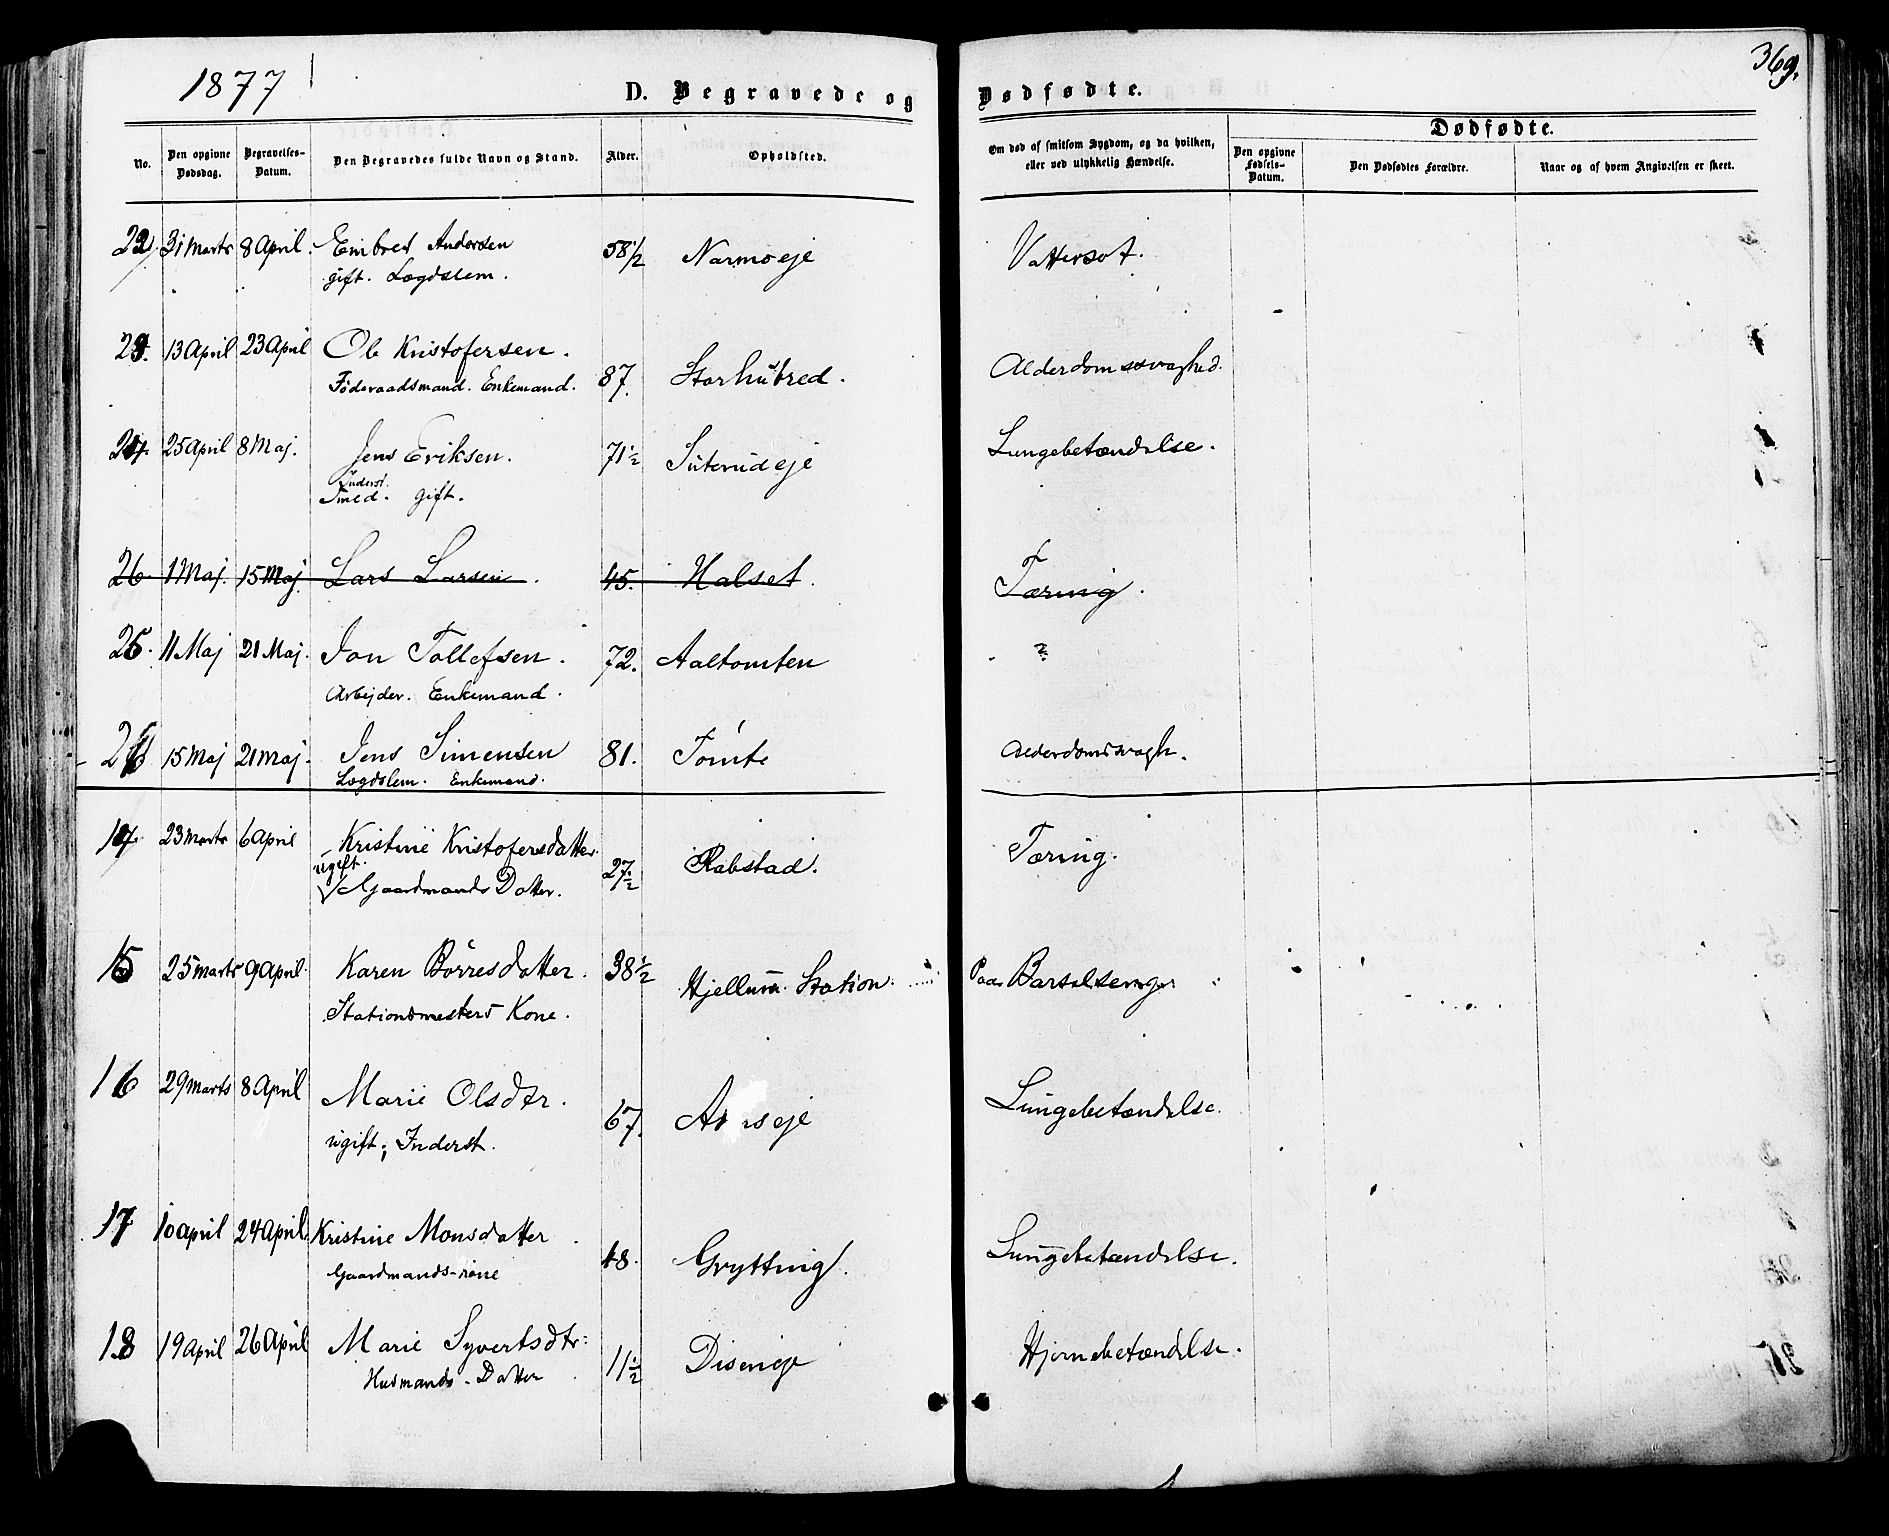 1877
369.
D. Begravede og Dødfødte.
No.
Den opgivne Dødsdag.
Begravelses-Datum.
Den Begravedes fulde Navn og Stand.
Alder.
Opholdsted.
Om død af smitsom Sygdom, og da hvilken, eller ved ulykkelig Hændelse.
Dødfødte.
Den opgivne Fødsels-Datum.
Den Dødfødtes Forældre.
Naar og af hvem Angivelsen er skeet.
31 Marts 8 April. Embret Andersen 58 1/2 Narmoeje Vattersot.
gift. Lægdslem.
23. 13 April 23 April Ole Kristofersen. 87. Storhubred. Alderdomssvaghed.
Føderaadsmand. Enkemand.
24. 25 April 8 Maj. Jens Eriksen. 71 1/2 Suterudeje Lungebetændelse.
Inderst.
Smed. gift.
26. 1 Maj. 15 Maj. Lars Larsen. 45. Halset. Tæring.
25. 11 Maj 21 Maj. Jon Tollefsen. 72. Aaltomten ?
Arbejder. Enkemand.
26 15 Maj 21 Maj. Jens Simensen 81. Tomte Alderdomssvagh.
Lægdslem. Enkemand.
14. 23 Marts 6 April Kristine Kristofersdatter. 27 1/2 Rabstad. Tæring.
ugift.
Gaardmands Datter.
15 25 Marts 9 April. Karen Børresdatter. 38 1/2 Hjellum Station. Paa Barselseng
Stationsmesters Kone.
16 29 Marts 8 April Marie Olsdtr. 67. Lungebetændelse.
ugift; Inderst.
17 10 April 24 April. Kristine Monsdatter. 48. Grytting. Lungebetændelse.
Gaardmands-kone
18 19 April 26 April Marie Syvertsdtr: 11 1/2 Diseneje Hjernebetændelse.
Husmands-Datter